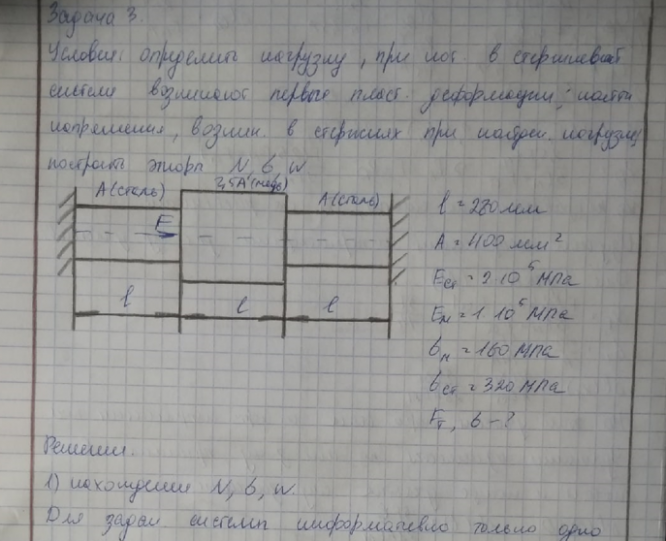 Задача 3.
Условие: определить нагрузку, при кот. в стержневой
системе возникают первые пласт. деформации; найти
напряжения, возник. в стержнях при найден. нагрузке,
построить эпюры N, б, w
A(сталь) 2,5A(медь) A(сталь)
F
l l l
l = 280мм
A = 400 мм²
Eст = 2·10⁵ МПа
Eм = 1·10⁵ МПа
бм = 160 МПа
бст = 320 МПа
Fт, б - ?
Решение.
1) нахождение N, б, w.
Для задан системы информативно только одно